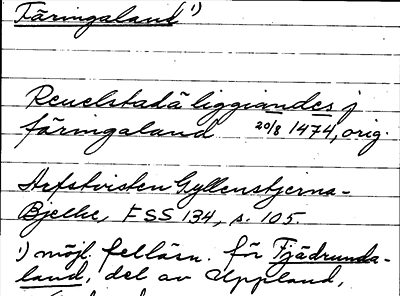 Färingaland ¹)
Renelstadä liggiandes j
färingaland 20/8 1474, orig.
Arfstvisten Gyllenstjerna-
Bjelke, FSS 134, s. 105.
¹) möjl. felläsn. för Fjädrunda-
land, del av Uppland,